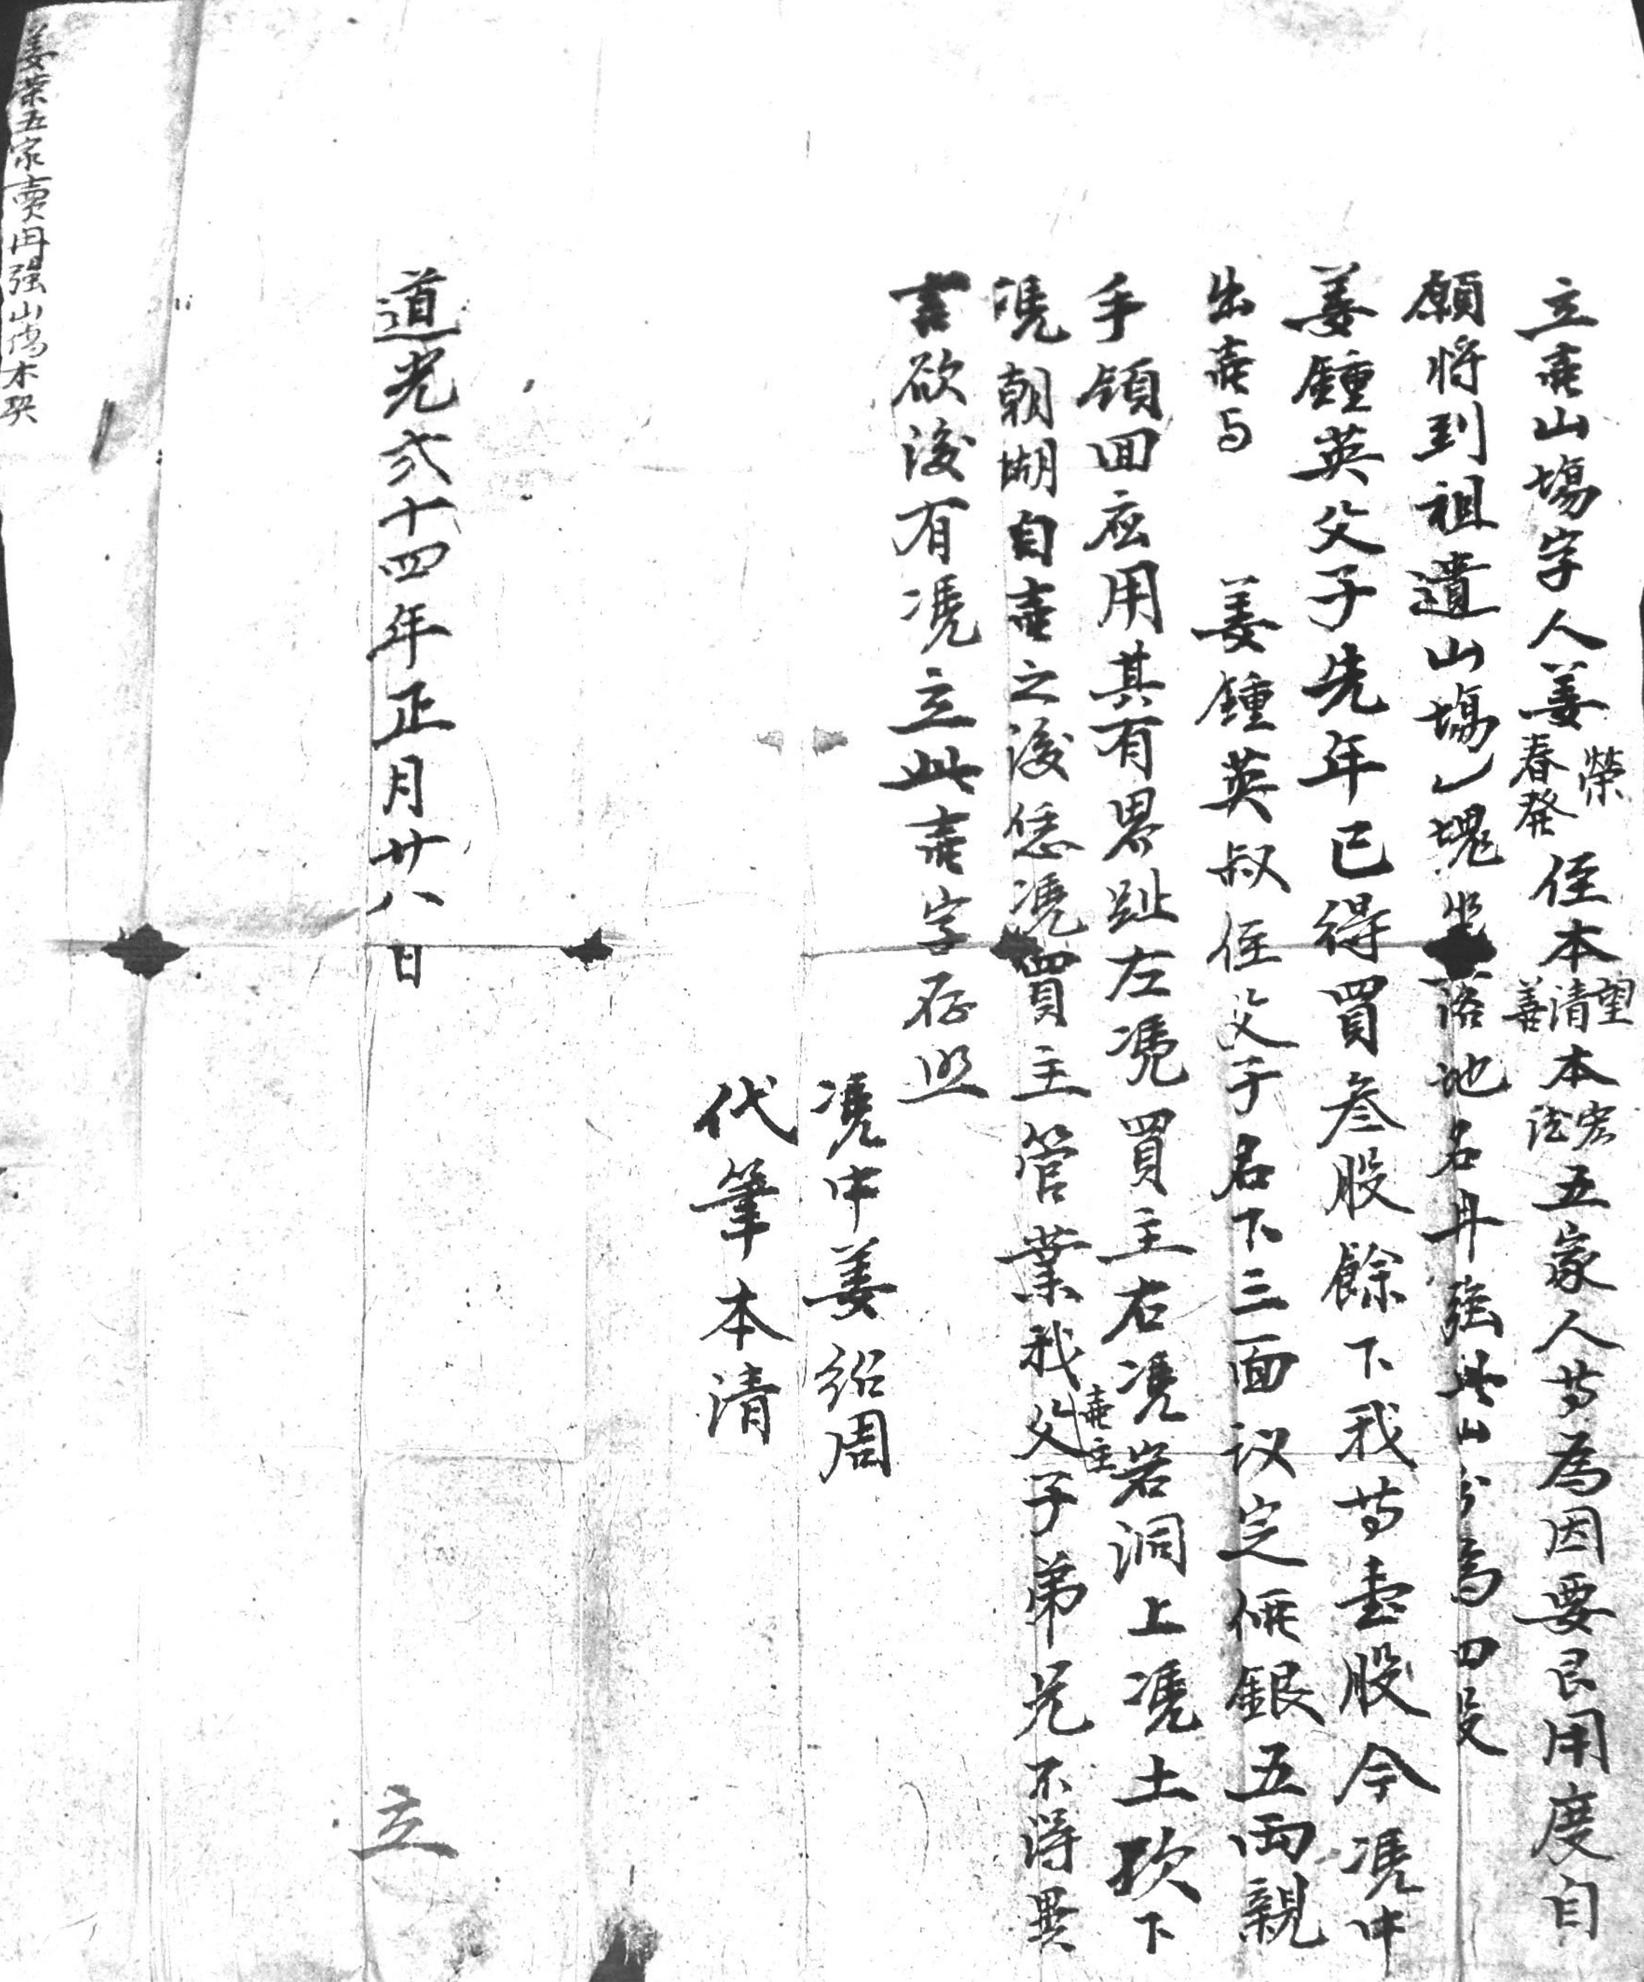 立賣山塲字人姜榮春發侄本望清善本宏法五家人等為因要艮用度自
願將到祖遺山塲乙塊坐落地名冉强此山分為四股
姜鍾英父子先年已得買叁股餘下我等壹股今憑中
出賣与 姜鍾英叔侄父子名下三面议定價銀五両親
手領囬应用其有界趾左憑買主右憑岩洞上憑土砍下
憑朝湖自賣之後恁憑買主管業我賣主父子弟兄不得異
言欲後有憑立此賣字存照
憑中姜紹周
代筆本清
道光弍十四年正月廿八日 立
姜荣五家賣冉强山塲木契